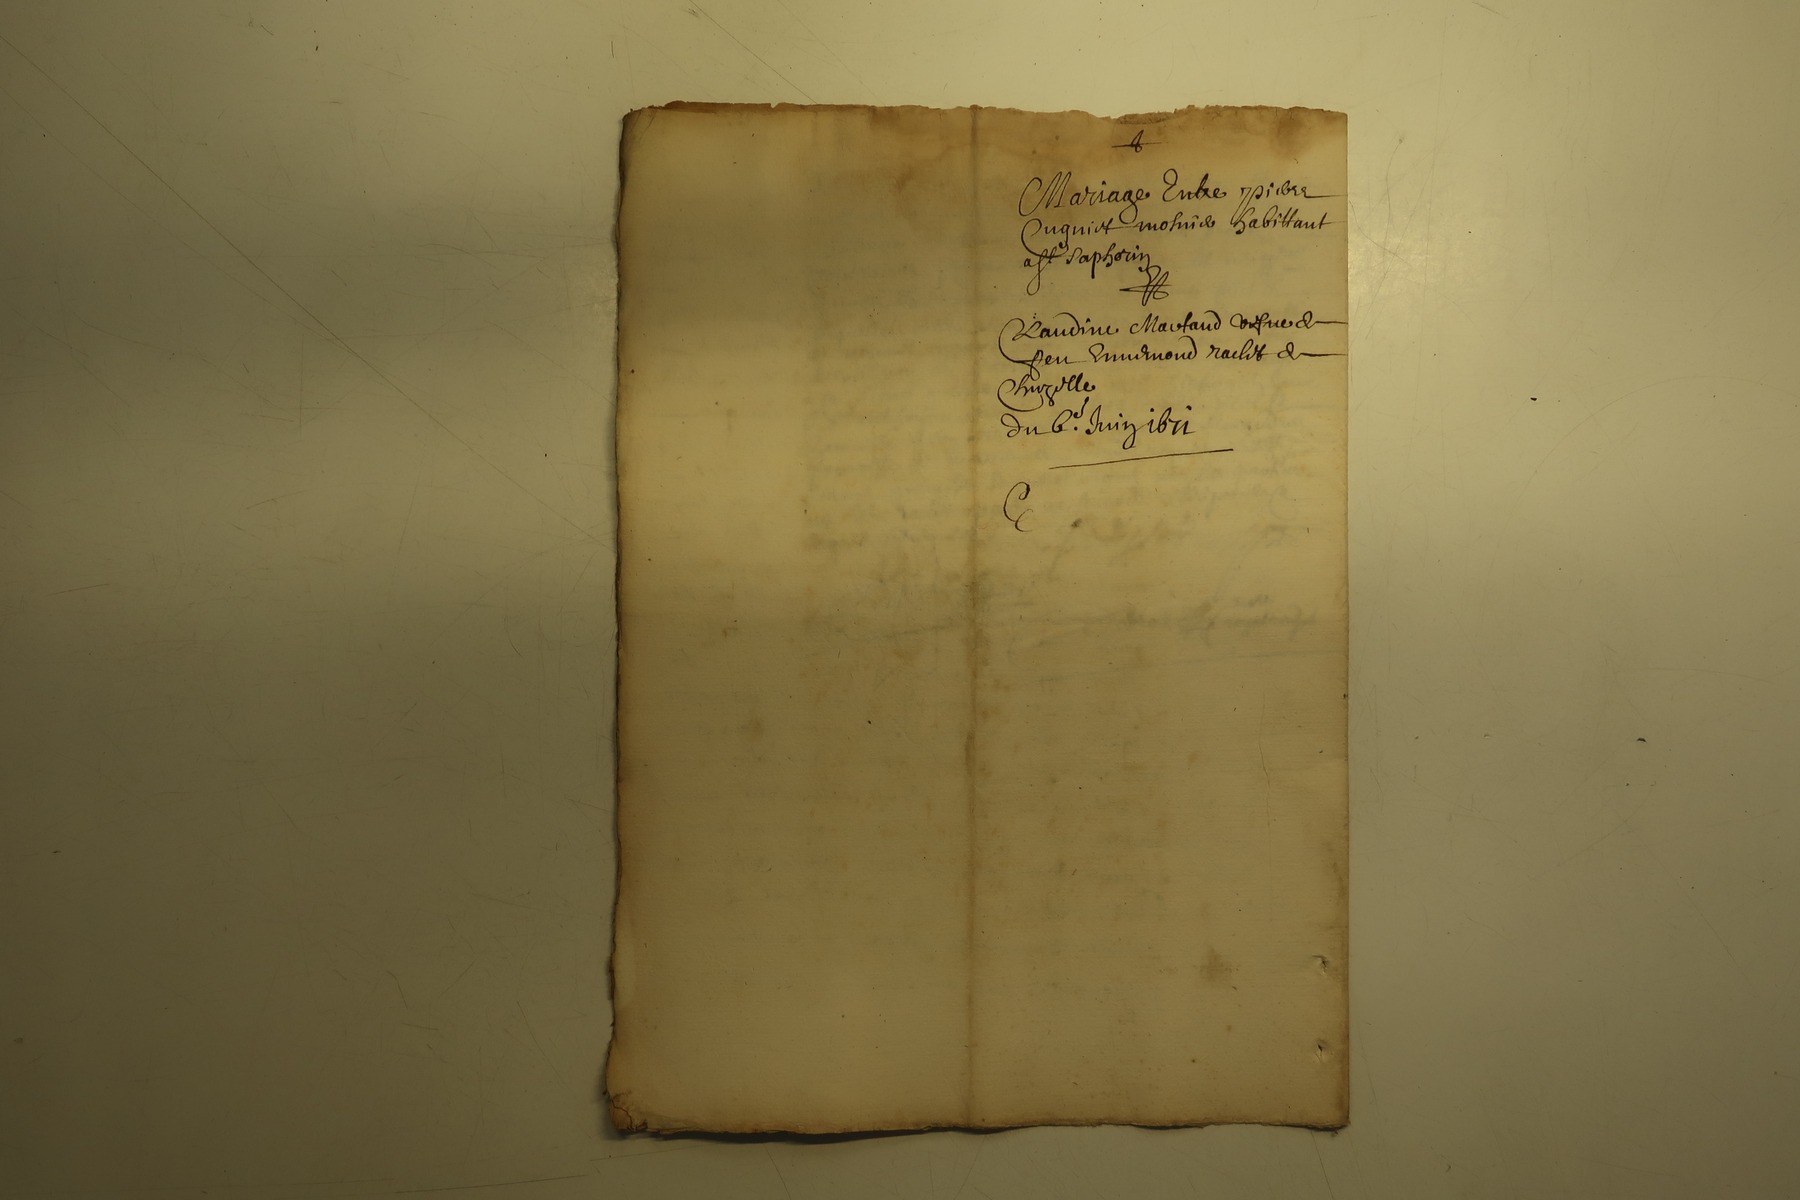 Mariage Entre pierre
Cugniet mosnier habittant
a st Saphorin
Et
Laudine Martaud vefue de
feu Ennemond rachet de
Chuzelle
du 6e Juin 1671